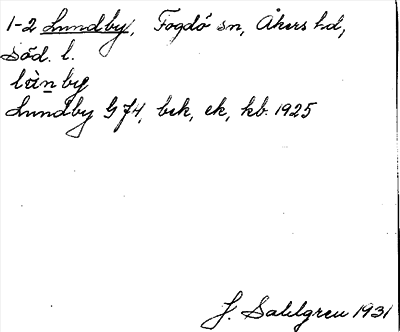 1-2 Lundby, Fogdö sn, Åkers hd,
Söd. l.
lùnby
Lundby G 74, bek, ek, kb. 1925
J. Sahlgren 1931